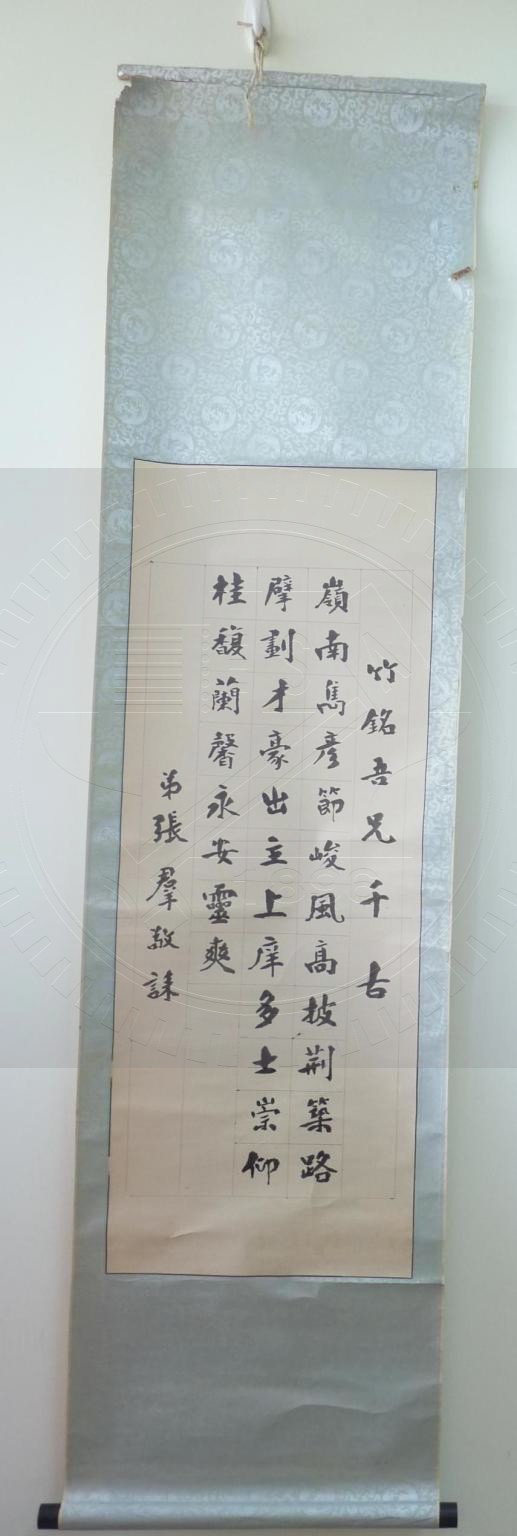 竹銘吾兄千古
嶺南雋彥節峻風高披荆築路
擘劃才豪出主上庠多士崇仰
桂馥蘭馨永安靈爽
弟張羣敬誄